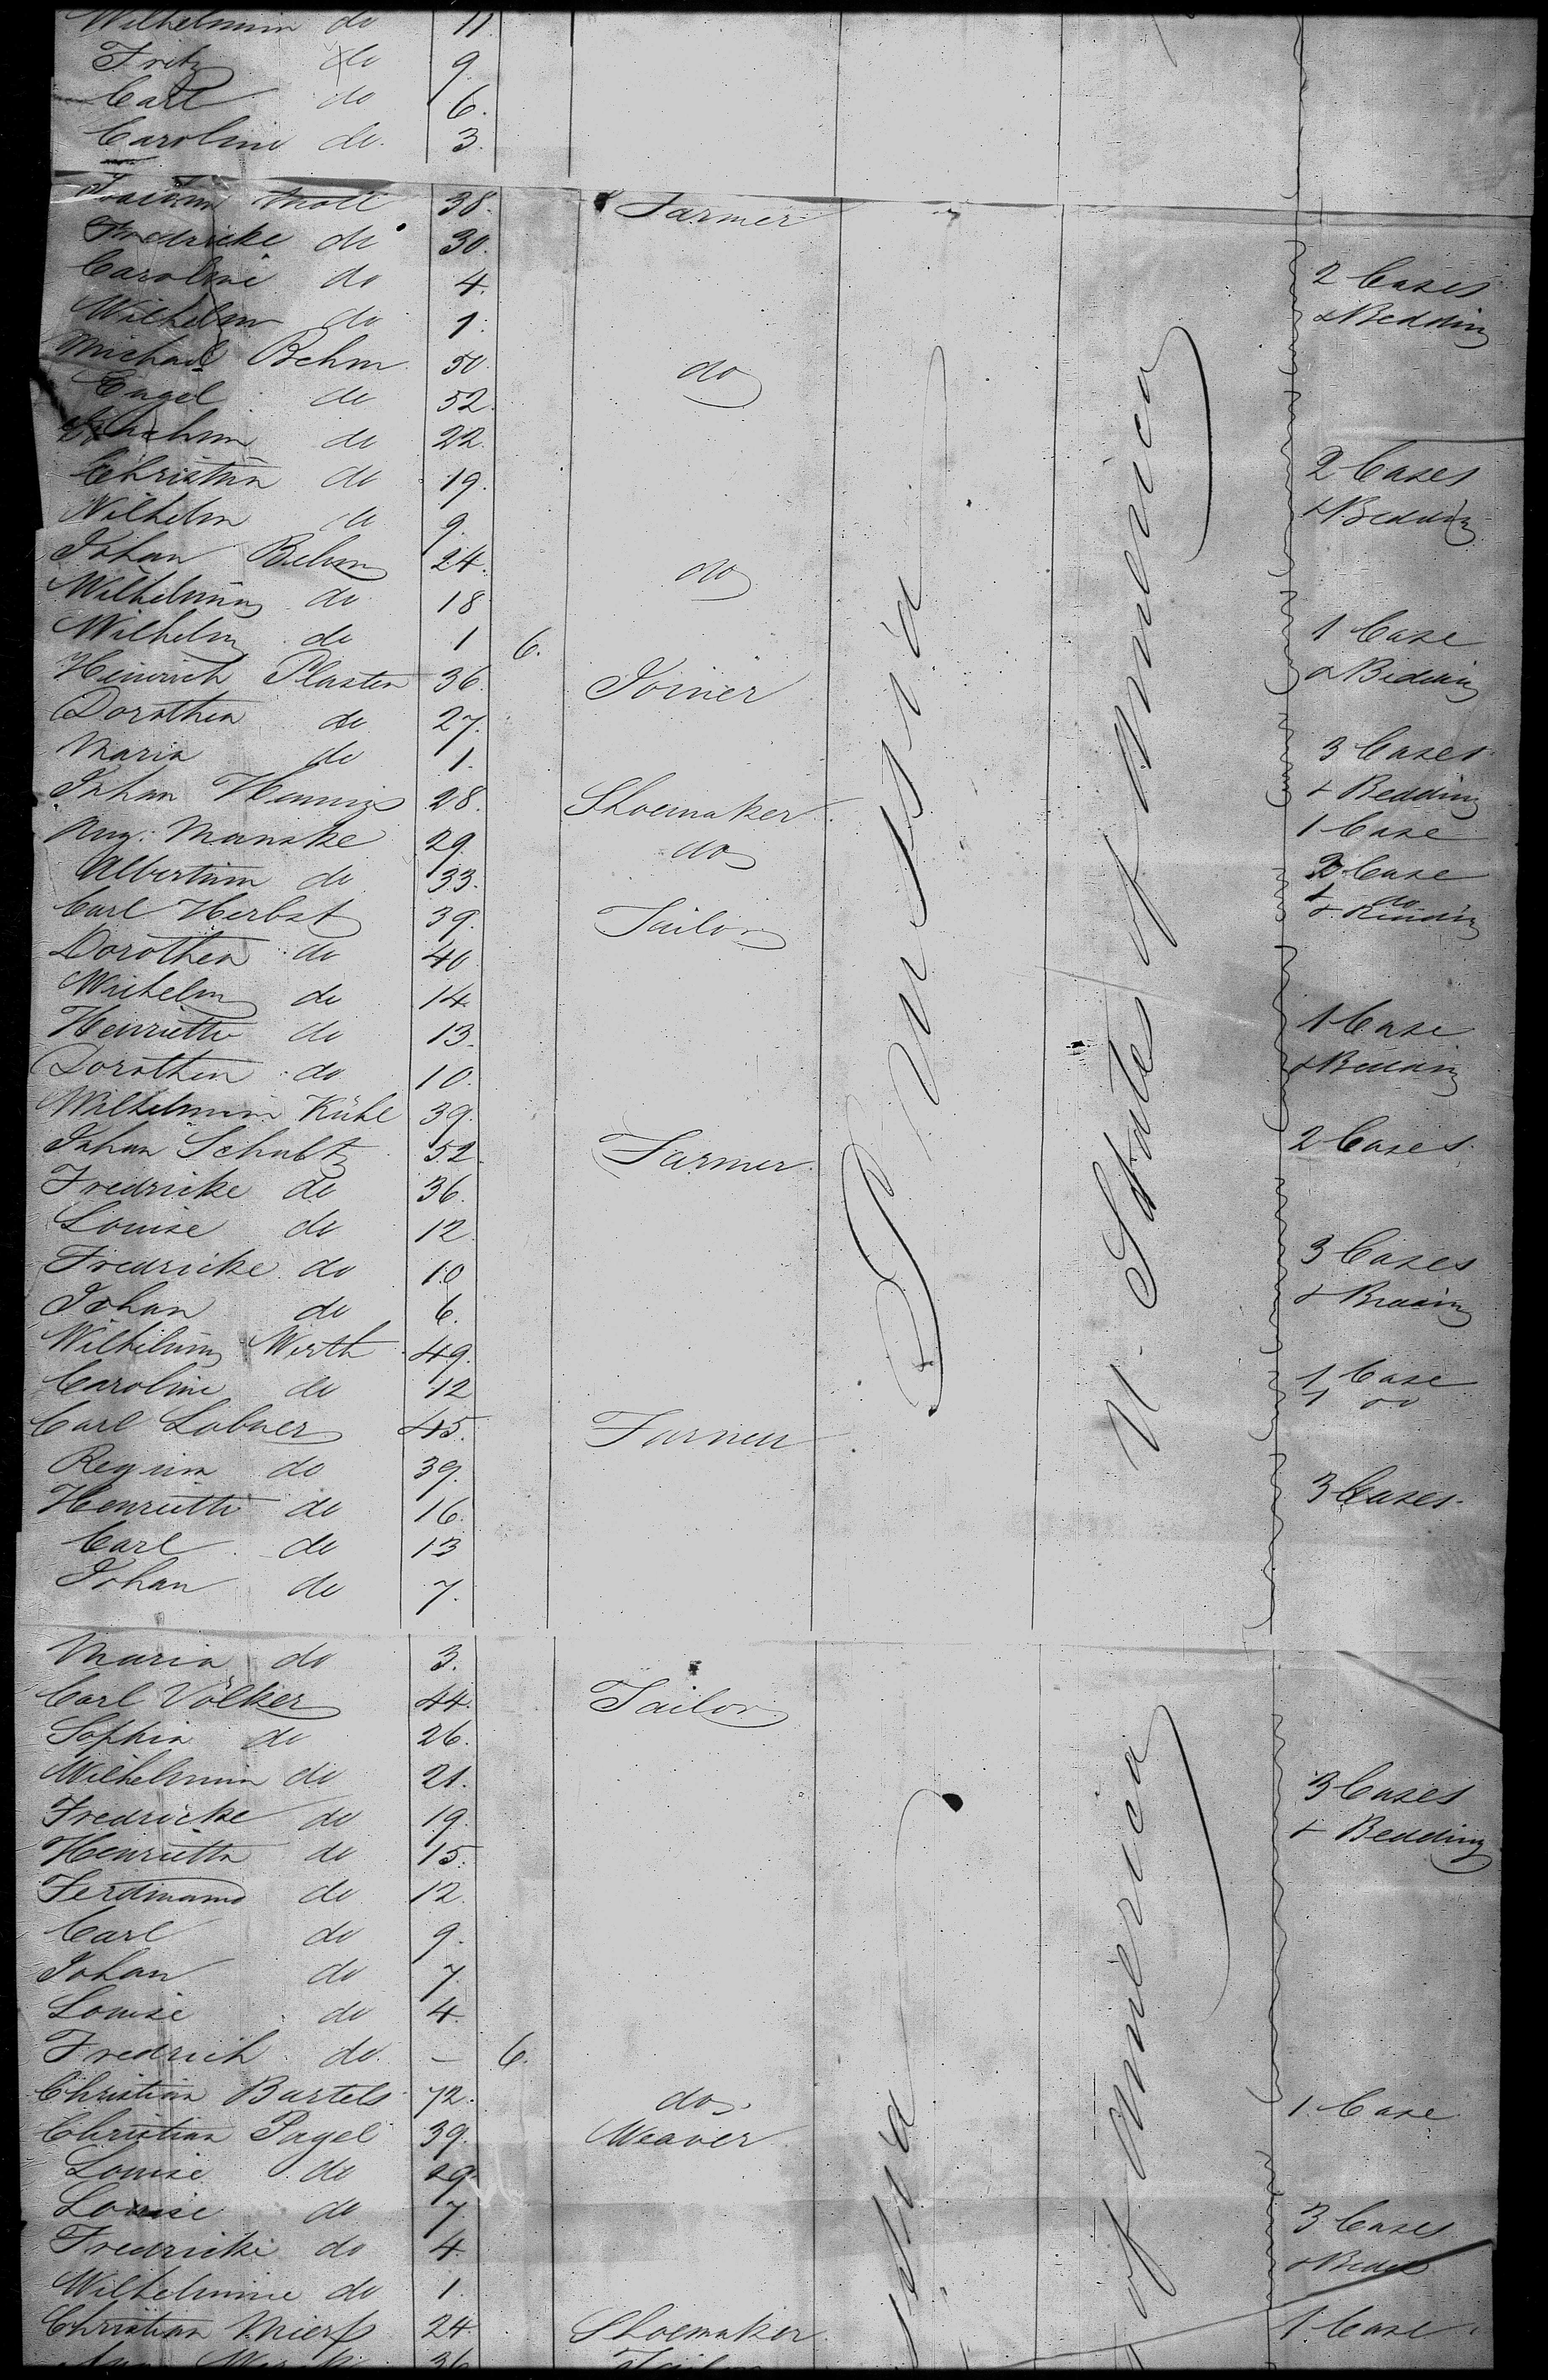 Wilhelmin do 11
Fritz do 9.
Carl do 6.
Caroline do. 3.
Joachim Moll 38. Farmer
Fredricke do 30.
Caroline do 4. 2 Cases
Wilhelm do 1. & Bedding
Michael Behm 50. do
Engel do 52.
do 22.
Christian do 19. 2 Cases
Wilhelm do 9. & Bedding
Johan Behm 24. do
Wilhelmin do 18
Wilhelm do 1 6. 1 Case
Heinrich Plaster 36. Joiner & Bedding
Dorothea do 27.
Maria do 1. 3 Cases
Johan Hennigs 28. Shoemaker & Bedding
Aug. Manske 29. do 1 Case
Albertina do 33. 2 Case
Carl Herbst 39. Tailor & Bedding
Dorothea do 40
Wilhelm do 14
Henriette do 13. 1 Case
Dorothea do 10. & Bedding
Wilhelmin Kühl 39.
Johan Schultz 52. Farmer. 2 Cases.
Fredricke do 36.
Louise do 12.
Fredricke do 10 3 Cases
Johan do 6. & Bedding
Wilhelmin Wirth 49.
Caroline do 12 1 Case
Carl Lobner 45. Farmer 1 do
Regina do 39.
Henriette do 16. 3 Cases.
Carl do 13
Johan do 7.
Prussia
U. States of America
Maria do 3.
Carl Völker 44. Tailor
Sophia do 26.
Wilhelmin do 21. 3 Cases
Fredricke do 19. & Bedding
Henrietta do 15.
Ferdinand do 12.
Carl do 9.
Johan do 7.
Louise do 4.
Fredrich do. — 6.
Christian Bartels 72. do. 1 Case
Christian Pagel 39. Weaver
Louise do 29
Louise do 7.
Fredricke do 4. 3 Cases
Wilhelmine do 1.
Christian 24 Shoemaker 1 Case.
36
of America